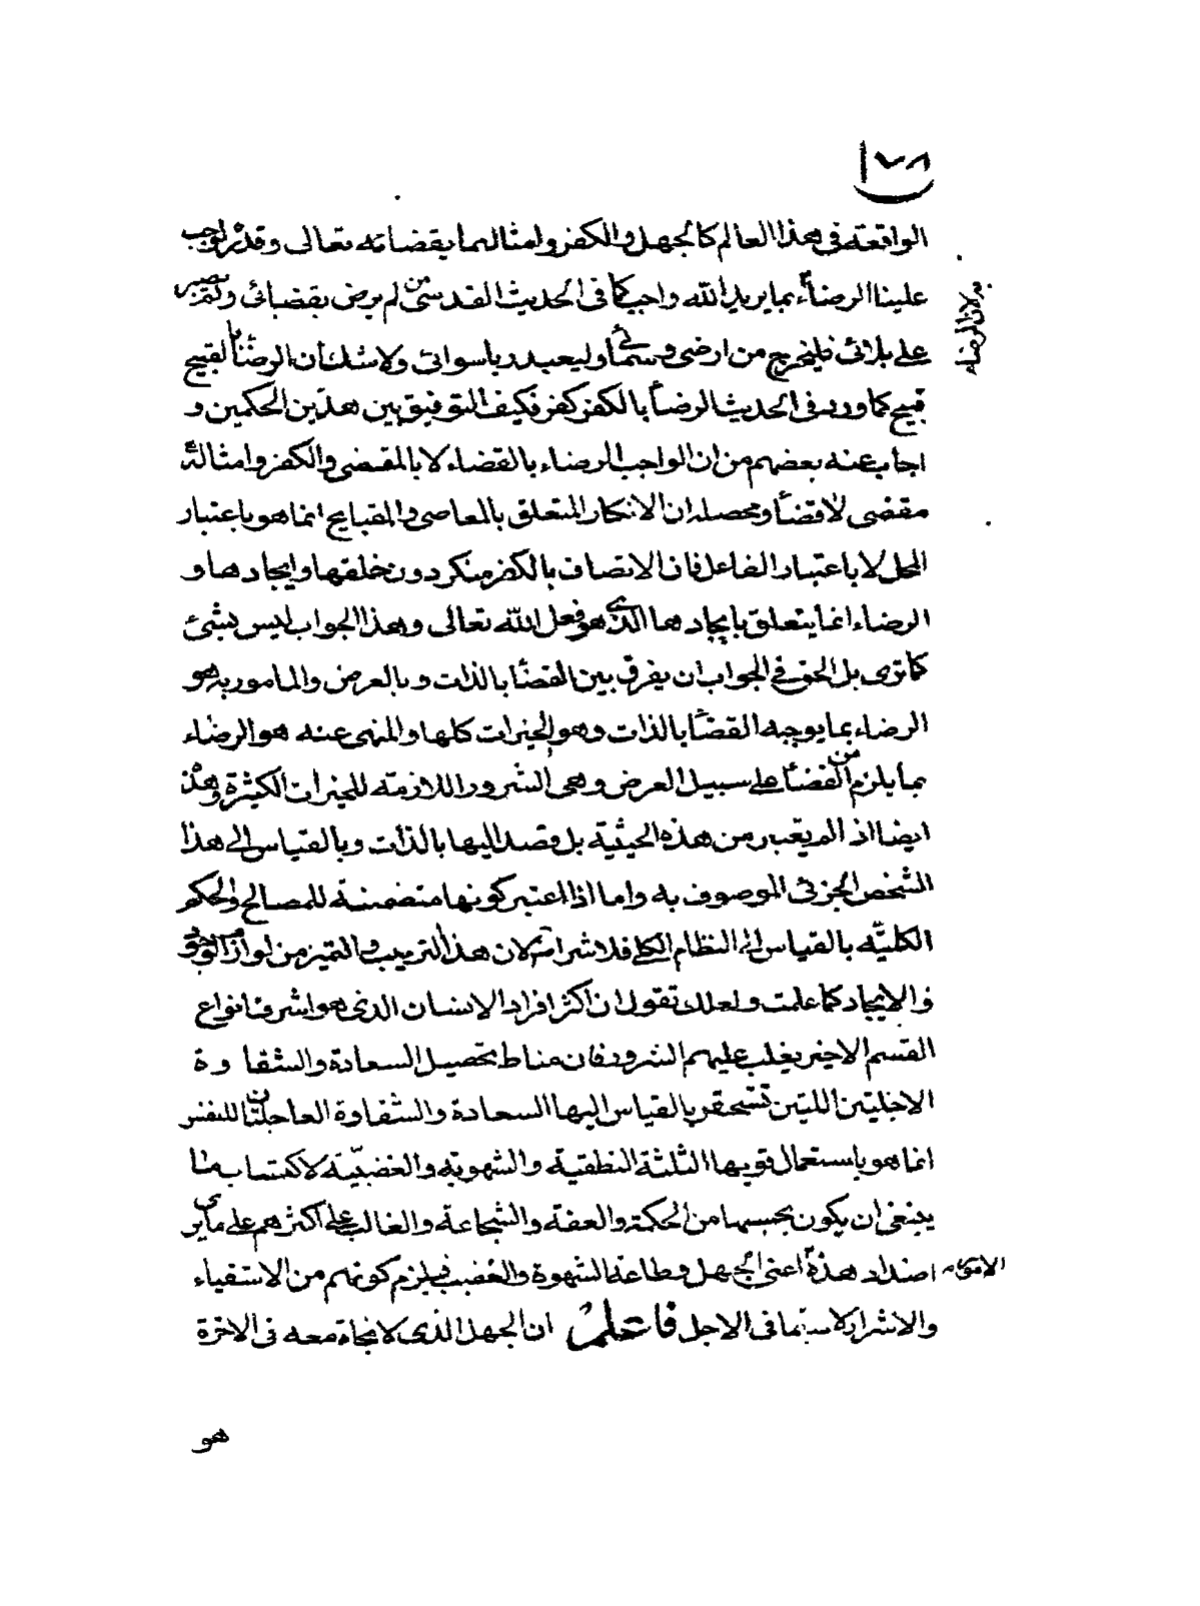 ١٧٨
الواقعة فى هذا العالم كالجهل والكفر وامثالهما بقضائه تعالى وقدره واجب
علينا الرضاء بما يريد الله واجب كما فى الحديث القدسى من لم يرض بقضائى ولم يصبر
به لان الرضاء
على بلائى فليخرج من ارضى وسمائى وليعبد ربا سوائى ولا شك ان الرضا بالقبيح
قبيح كما ورد فى الحديث الرضا بالكفر كفر فكيف التوفيق بين هذين الحكمين و
اجاب عنه بعضهم من ان الواجب الرضاء بالقضاء لا بالمقضى والكفر وامثاله
مقضى لا قضا ومحصله ان الانكار المتعلق بالمعاصى والقبايح انما هو باعتبار
المحل لا باعتبار الفاعل فان الاتصاف بالكفر منكر دون خلقها وايجادها و
الرضاء انما يتعلق بايجادها الذى هو فعل الله تعالى وهذا الجواب ليس بشئ
كما ترى بل الحق فى الجواب ان يفرق بين القضا بالذات وبالعرض والمامور به هو
الرضاء بما يوجبه القضا بالذات وهو الخيرات كلها والمنهى عنه هو الرضاء
بما يلزم من القضا على سبيل العرض وهى الشرور اللازمة للخيرات الكثيرة وهذه
ايضا اذا لم يعتبر من هذه الحيثية بل قصد اليها بالذات وبالقياس الى هذا
الشخص الجزئى الموصوف به واما اذا اعتبر كونها متضمنة للمصالح والحكم
الكلية بالقياس الى النظام الكلى فلا شرات لان هذا الترتيب والتميز من لوازم الوجود
والايجاد كما علمت ولعلك تقول ان اكثر افراد الانسان الذى هو اشرف انواع
القسم الاخير يغلب عليهم الشرور فان مناط تحصيل السعادة والشقاوة
الاجليتين اللتين تستحقر بالقياس اليها السعادة والشقاوة العاجلتان للنفس
انما هو باستعمال قويها الثلثة النطقية والشهوية والغضبية لاكتساب ما
ينبغى ان يكون بحسبها من الحكمة والعفة والشجاعة والغالب على اكثرهم على ما يرى
اضداد هذه اعنى الجهل وطاعة الشهوة والغضب فيلزم كونهم من الاشقياء
والاشرار لا سيما فى الاجل فاعلم ان الجهل الذى لا نجاة معه فى الاخرة
هو